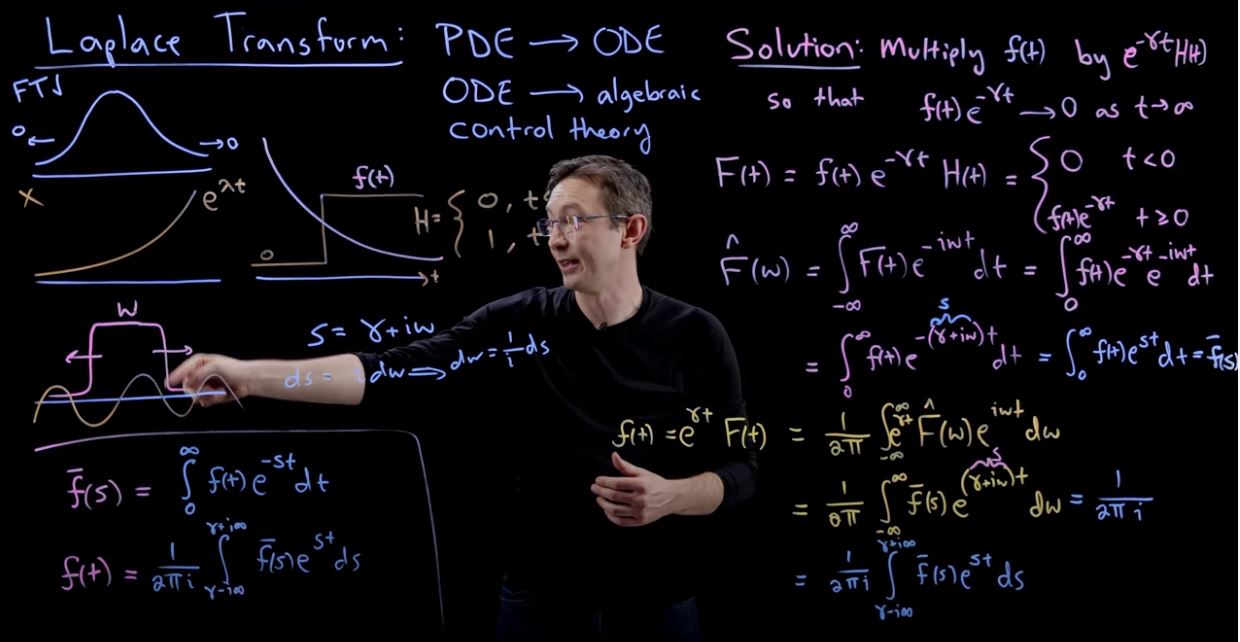 Laplace Transform:
PDE → ODE
ODE → algebraic
control theory
FTJ
0 ← → 0
x
e^{λt}
f(t)
0
t
H = { 0, t
1, t
W
S = γ + iω
ds = i dω ⟹ dω = 1/i ds
f̄(s) = ∫_0^∞ f(t) e^{-st} dt
f(t) = 1/2πi ∫_{γ-i∞}^{γ+i∞} f̄(s) e^{st} ds
Solution: Multiply f(t) by e^{-γt} H(t)
so that f(t) e^{-γt} → 0 as t → ∞
F(t) = f(t) e^{-γt} H(t) = { 0 t < 0
f(t) e^{-γt} t ≥ 0
F̂(ω) = ∫_{-∞}^{∞} F(t) e^{-iωt} dt = ∫_0^∞ f(t) e^{-γt} e^{-iωt} dt
s
= ∫_0^∞ f(t) e^{-(γ+iω)t} dt = ∫_0^∞ f(t) e^{st} dt = f̄(s)
f(t) = e^{γt} F(t) = 1/2π ∫_{-∞}^{∞} e^{γt} F̂(ω) e^{iωt} dω
s
= 1/2π ∫_{-∞}^{∞} f̄(s) e^{(γ+iω)t} dω = 1/2πi
= 1/2πi ∫_{γ-i∞}^{γ+i∞} f̄(s) e^{st} ds